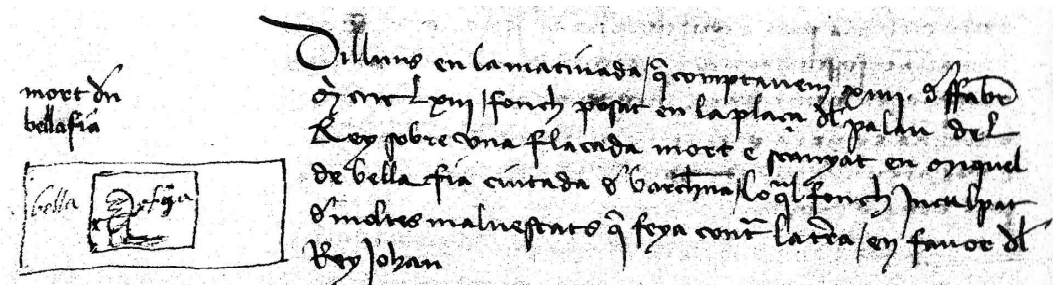 mort d'n
bellafia
bella fia
Dilluns en la matinada / q comptavem xiiii d' ffabr
M cccc Lxiii / fonch posat en la plaça dl palau del
Rey sobre una flaçada mort e scanyat en miquel
de bella fia ciutada d' barchna / lo ql fonch Inculpat
d' moltes malvestats q feya contr la tra / en favor dl
Rey Johan